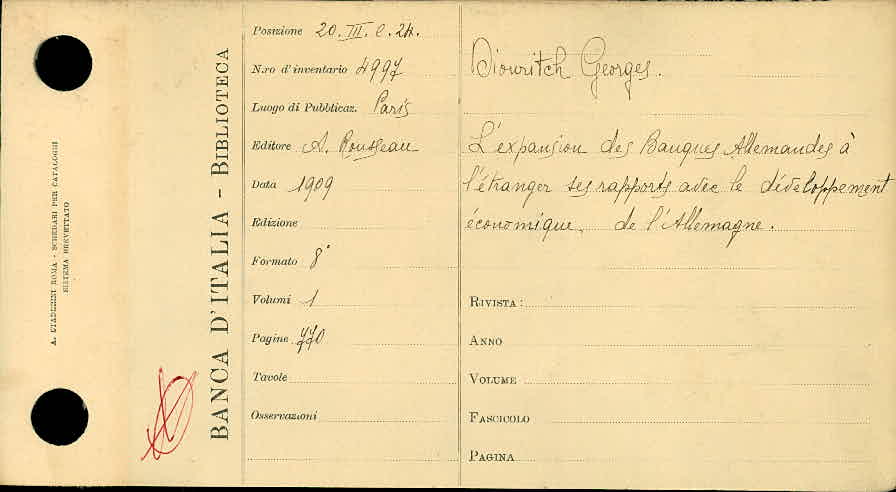 A. STADERINI ROMA - SCHEDARI PER CATALOGHI
SISTEMA BREVETTATO
BANCA D'ITALIA - BIBLIOTECA
Posizione 20. III. C. 24.
N.ro d'inventario 4997
Luogo di Pubblicaz. Paris
Editore A. Rousseau
Data 1909
Edizione
Formato 8°
Volumi 1
Pagine 770
Tavole
Osservazioni
Diouritch Georges.
L'expansion des Banques Allemandes à
l'étranger ses rapports avec le développement
économique de l'Allemagne.
RIVISTA:
ANNO
VOLUME
FASCICOLO
PAGINA